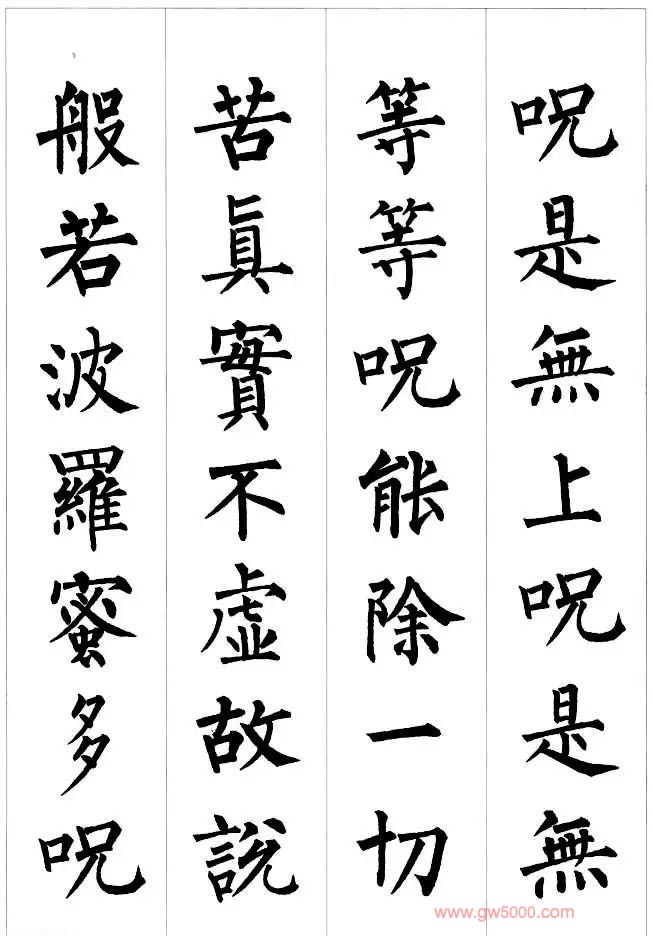 呪是無上呪是無
等等呪能除一切
苦眞實不虛故說
般若波羅蜜多呪
www.gw5000.com